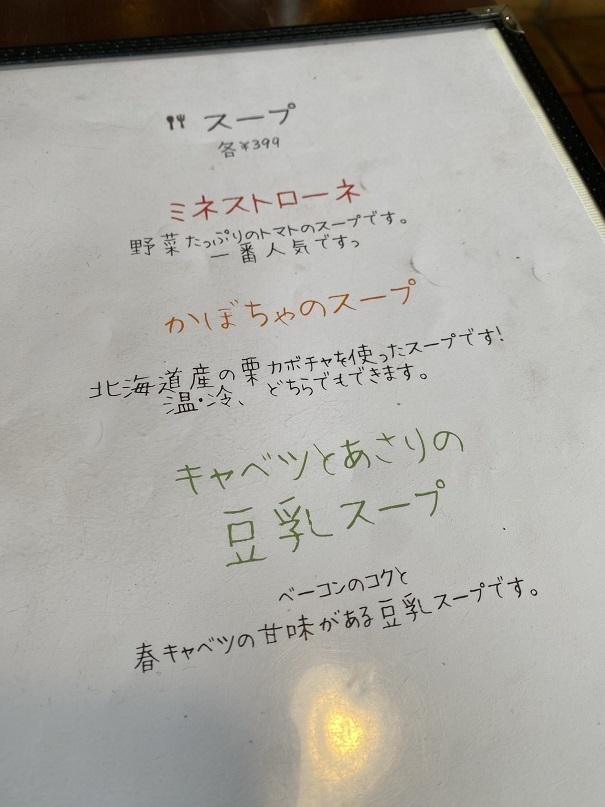 スープ
各¥399
ミネストローネ
野菜たっぷりのトマトのスープです。
一番人気ですっ
かぼちゃのスープ
北海道産の栗カボチャを使ったスープです!
温・冷、どちらでもできます。
キャベツとあさりの
豆乳スープ
ベーコンのコクと
春キャベツの甘味がある豆乳スープです。